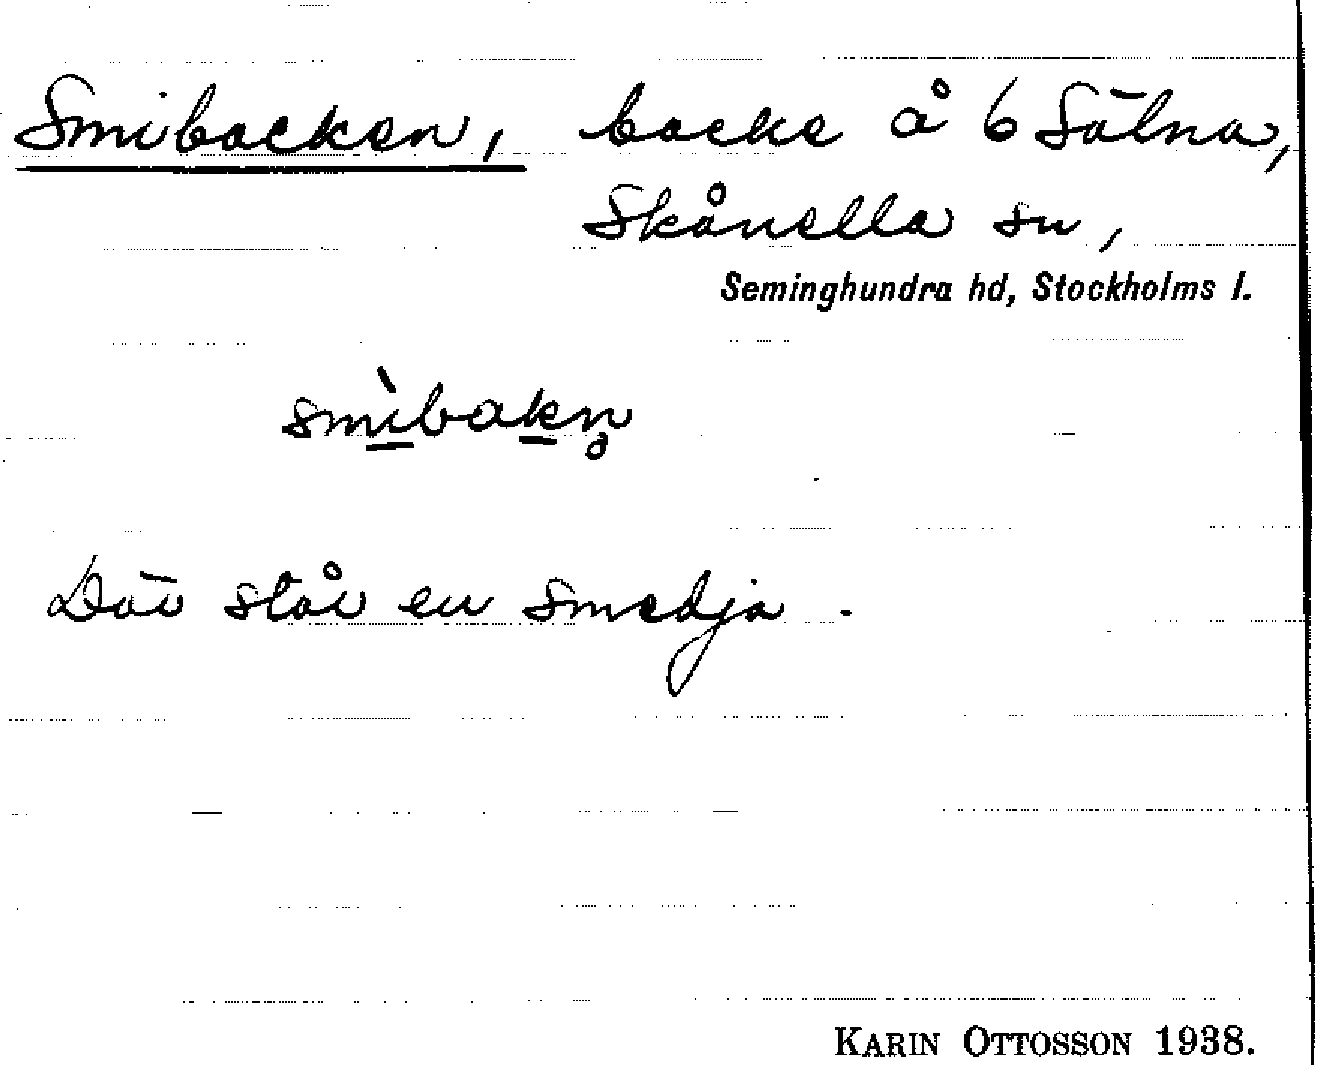 Smibacken, backe å 6 Sälna,
Skånella sn,
Seminghundra hd, Stockholms l.
smìbakn̥
Där står en smedja.
KARIN OTTOSSON 1938.